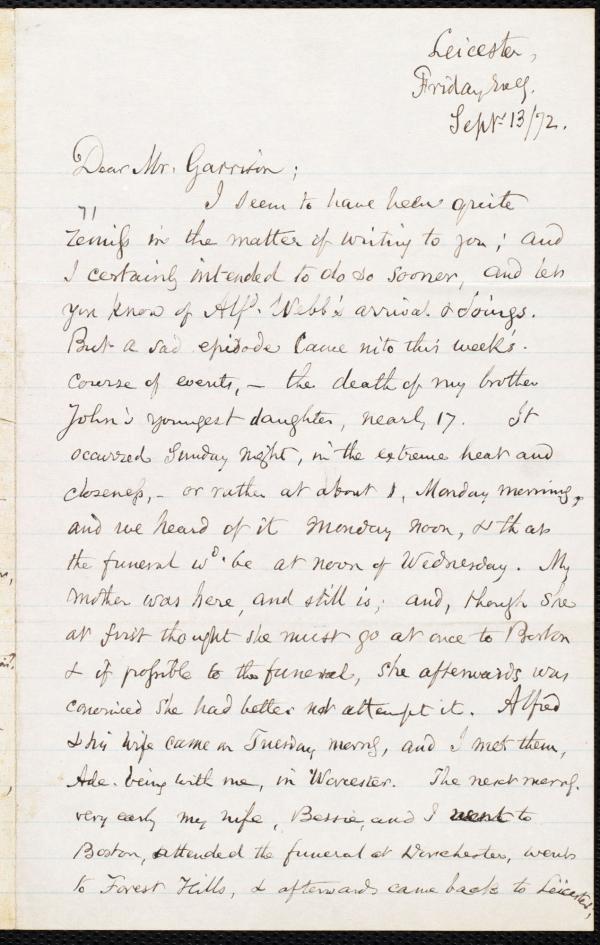 Leicester,
Friday Eveg.
Septr. 13/72.
Dear Mr. Garrison;
I seem to have been quite
remiss in the matter of writing to you; and
I certainly intended to do so sooner, and let
you know of Alfd. Webb's arrival & doings.
But a sad episode came into this week's
course of events, – the death of my brother
John's youngest daughter, nearly 17. It
occurred Sunday night, in the extreme heat and
closeness, – or rather at about 1, Monday morning,
and we heard of it Monday noon, & that
the funeral wd. be at noon of Wednesday. My
mother was here, and still is; and, though she
at first thought she must go at once to Boston
& if possible to the funeral, she afterwards was
convinced she had better not attempt it. Alfred
& his wife came on Tuesday morng, and I met them,
Ade. being with me, in Worcester. The next morng.
very early my wife, Bessie, and I went to
Boston, attended the funeral at Dorchester, went
to Forest Hills, & afterwards came back to Leicester,